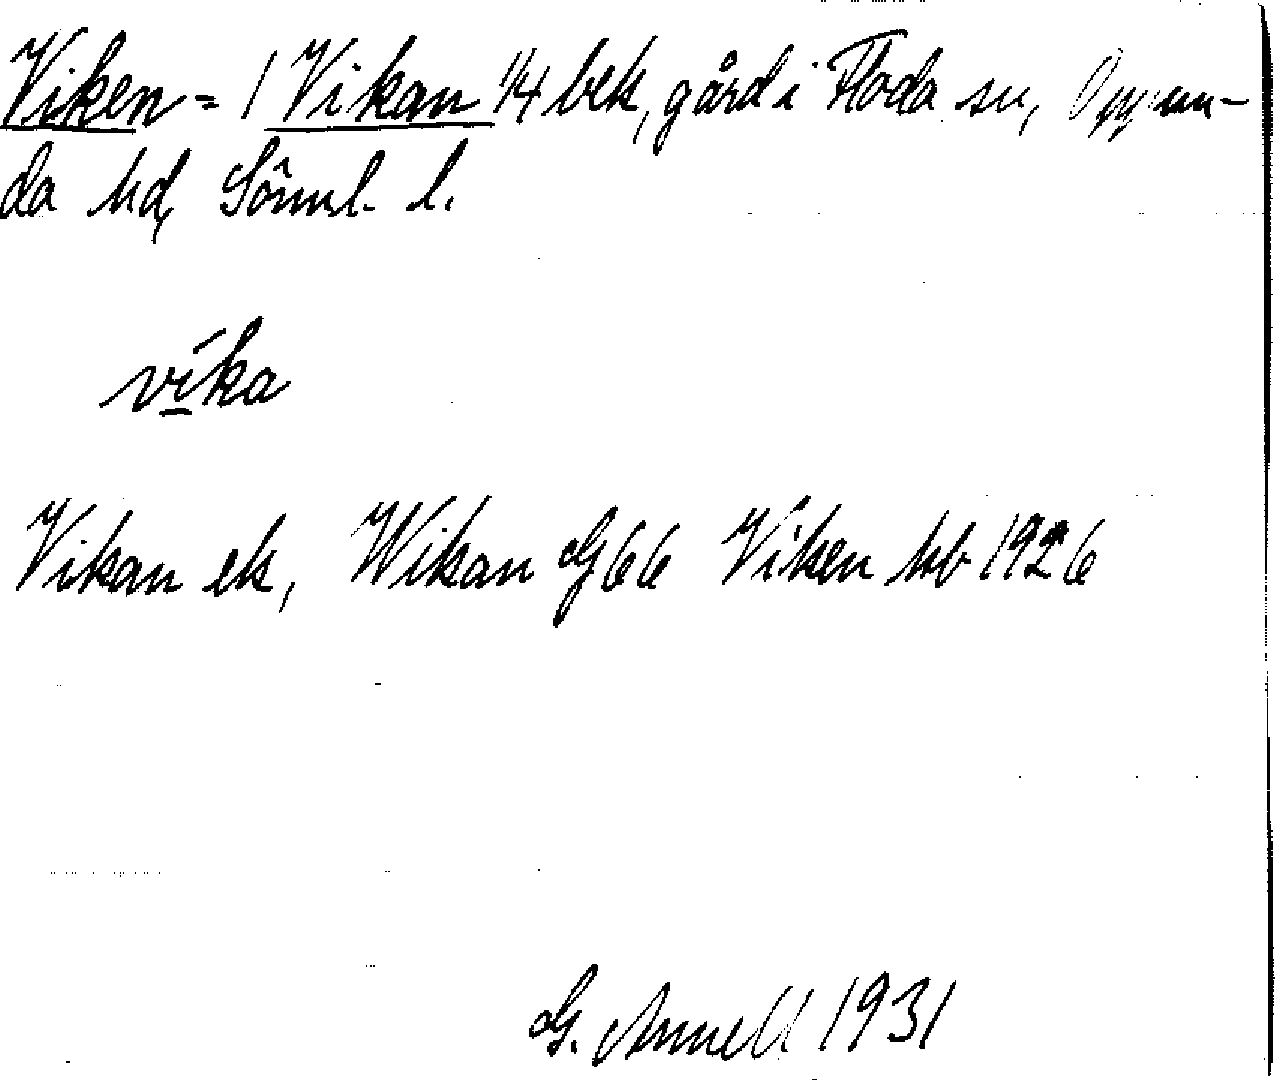 Viken = 1 Vikan 1/4 bek, gård i Floda sn, Oppun-
da hd, Sörml. l.
víka
Vikan ek, Wikan G66 Viken kb 1926
G. Annell 1931